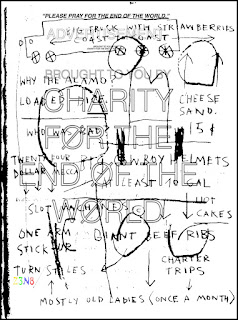 "PLEASE PRAY FOR THE END OF THE WORLD."
BIG TRUCK WITH STRAWBERRIES
COAST TO COAST
WHY THE ALAMO
BROUGHT TO YOU BY
LOADED
CHARITY
CHEESE
SAND.
15¢
WHO WAS
FOR THE
TWENTY FOUR
COWBOY HELMETS
DOLLAR MECCA
END OF THE
AT LEAST 10 GAL
SLOT MACHANE
WORLD
HOT
CAKES
ONE ARM
GIANT BEEF RIBS
STICK UR
CHARTER
TURN STILES
TRIPS
MOSTLY OLD LADIES (ONCE A MONTH)